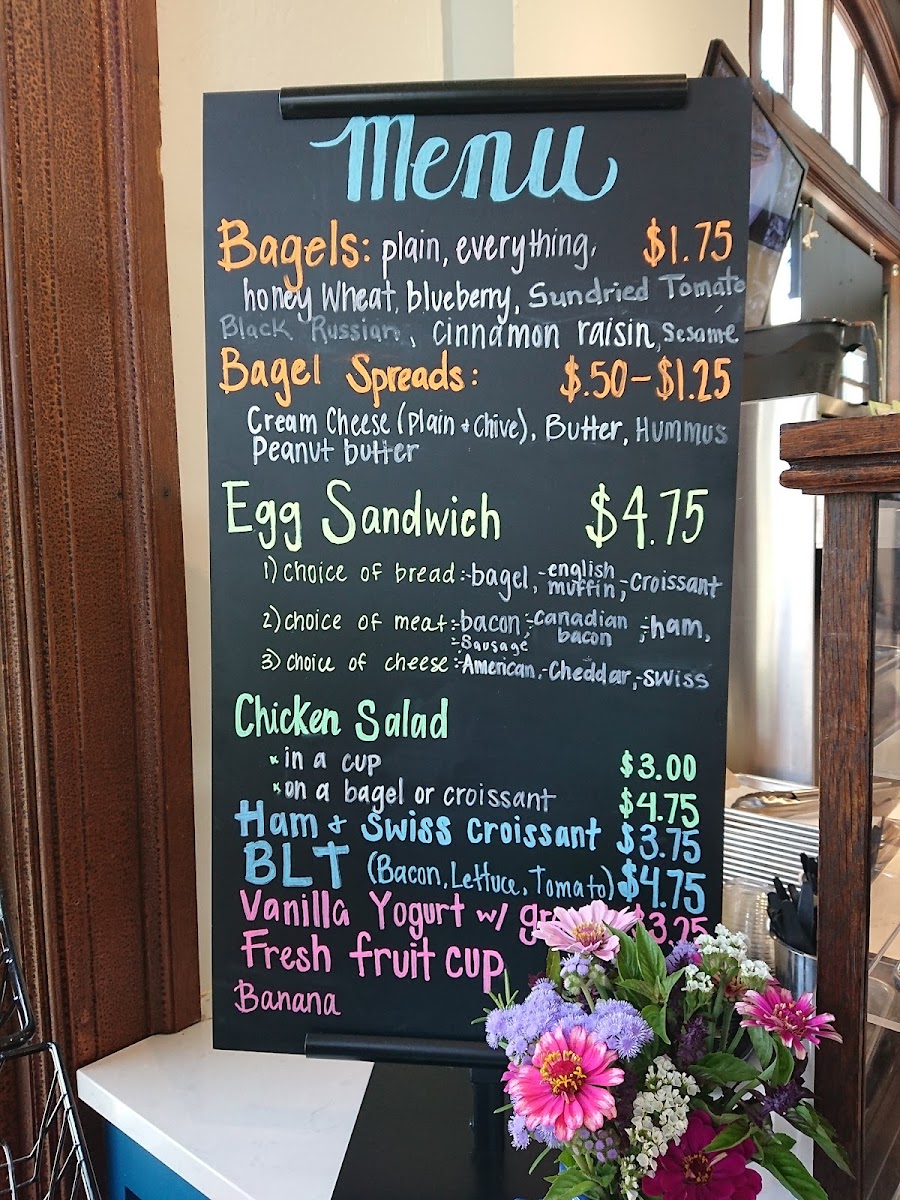 Menu
Bagels: plain, everything, $1.75
honey wheat, blueberry, Sundried Tomato
Black Russian, cinnamon raisin, sesame
Bagel Spreads: $.50-$1.25
Cream Cheese (plain + chive), Butter, Hummus
Peanut butter
Egg Sandwich $4.75
1) choice of bread:-bagel,-english muffin,-croissant
2) choice of meat:-bacon,-canadian bacon,-ham,
-Sausage
3) choice of cheese:-American,-cheddar,-swiss
Chicken Salad
*in a cup $3.00
*on a bagel or croissant $4.75
Ham + Swiss croissant $3.75
BLT (Bacon, Lettuce, Tomato) $4.75
Vanilla Yogurt w/ $3.25
Fresh fruit cup
Banana